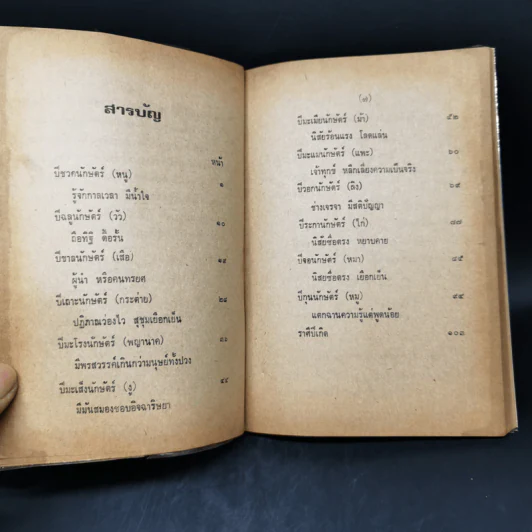 สารบัญ
หน้า
ปีชวดนักษัตร์ (หนู) ๑
รู้จักกาลเวลา มีน้ำใจ
ปีฉลูนักษัตร์ (วัว) ๑๐
ถือทิฐิ ดื้อรั้น
ปีขาลนักษัตร์ (เสือ)
ผู้นำ หรือคนทรยศ
ปีเถาะนักษัตร์ (กระต่าย)
ปฏิภาณว่องไว สุขุมเยือกเย็น
ปีมะโรงนักษัตร์ (พญานาค)
มีพรสวรรค์เกินกว่ามนุษย์ทั้งปวง
ปีมะเส็งนักษัตร์ (งู)
มีมันสมองชอบอิจฉาริษยา
ปีมะเมียนักษัตร์ (ม้า) ๕๒
นิสัยร้อนแรง โลดแล่น
ปีมะแมนักษัตร์ (แพะ) ๖๐
เจ้าทุกข์ หลีกเลี่ยงความเป็นจริง
ปีวอกนักษัตร์ (ลิง)
ช่างเจรจา มีสติปัญญา
ปีระกานักษัตร์ (ไก่)
นิสัยซื่อตรง หยาบคาย
ปีจอนักษัตร์ (หมา)
นิสัยซื่อตรง เยือกเย็น
ปีกุนนักษัตร์ (หมู)
แตกฉานความรู้แต่พูดน้อย
ราศีปีเกิด